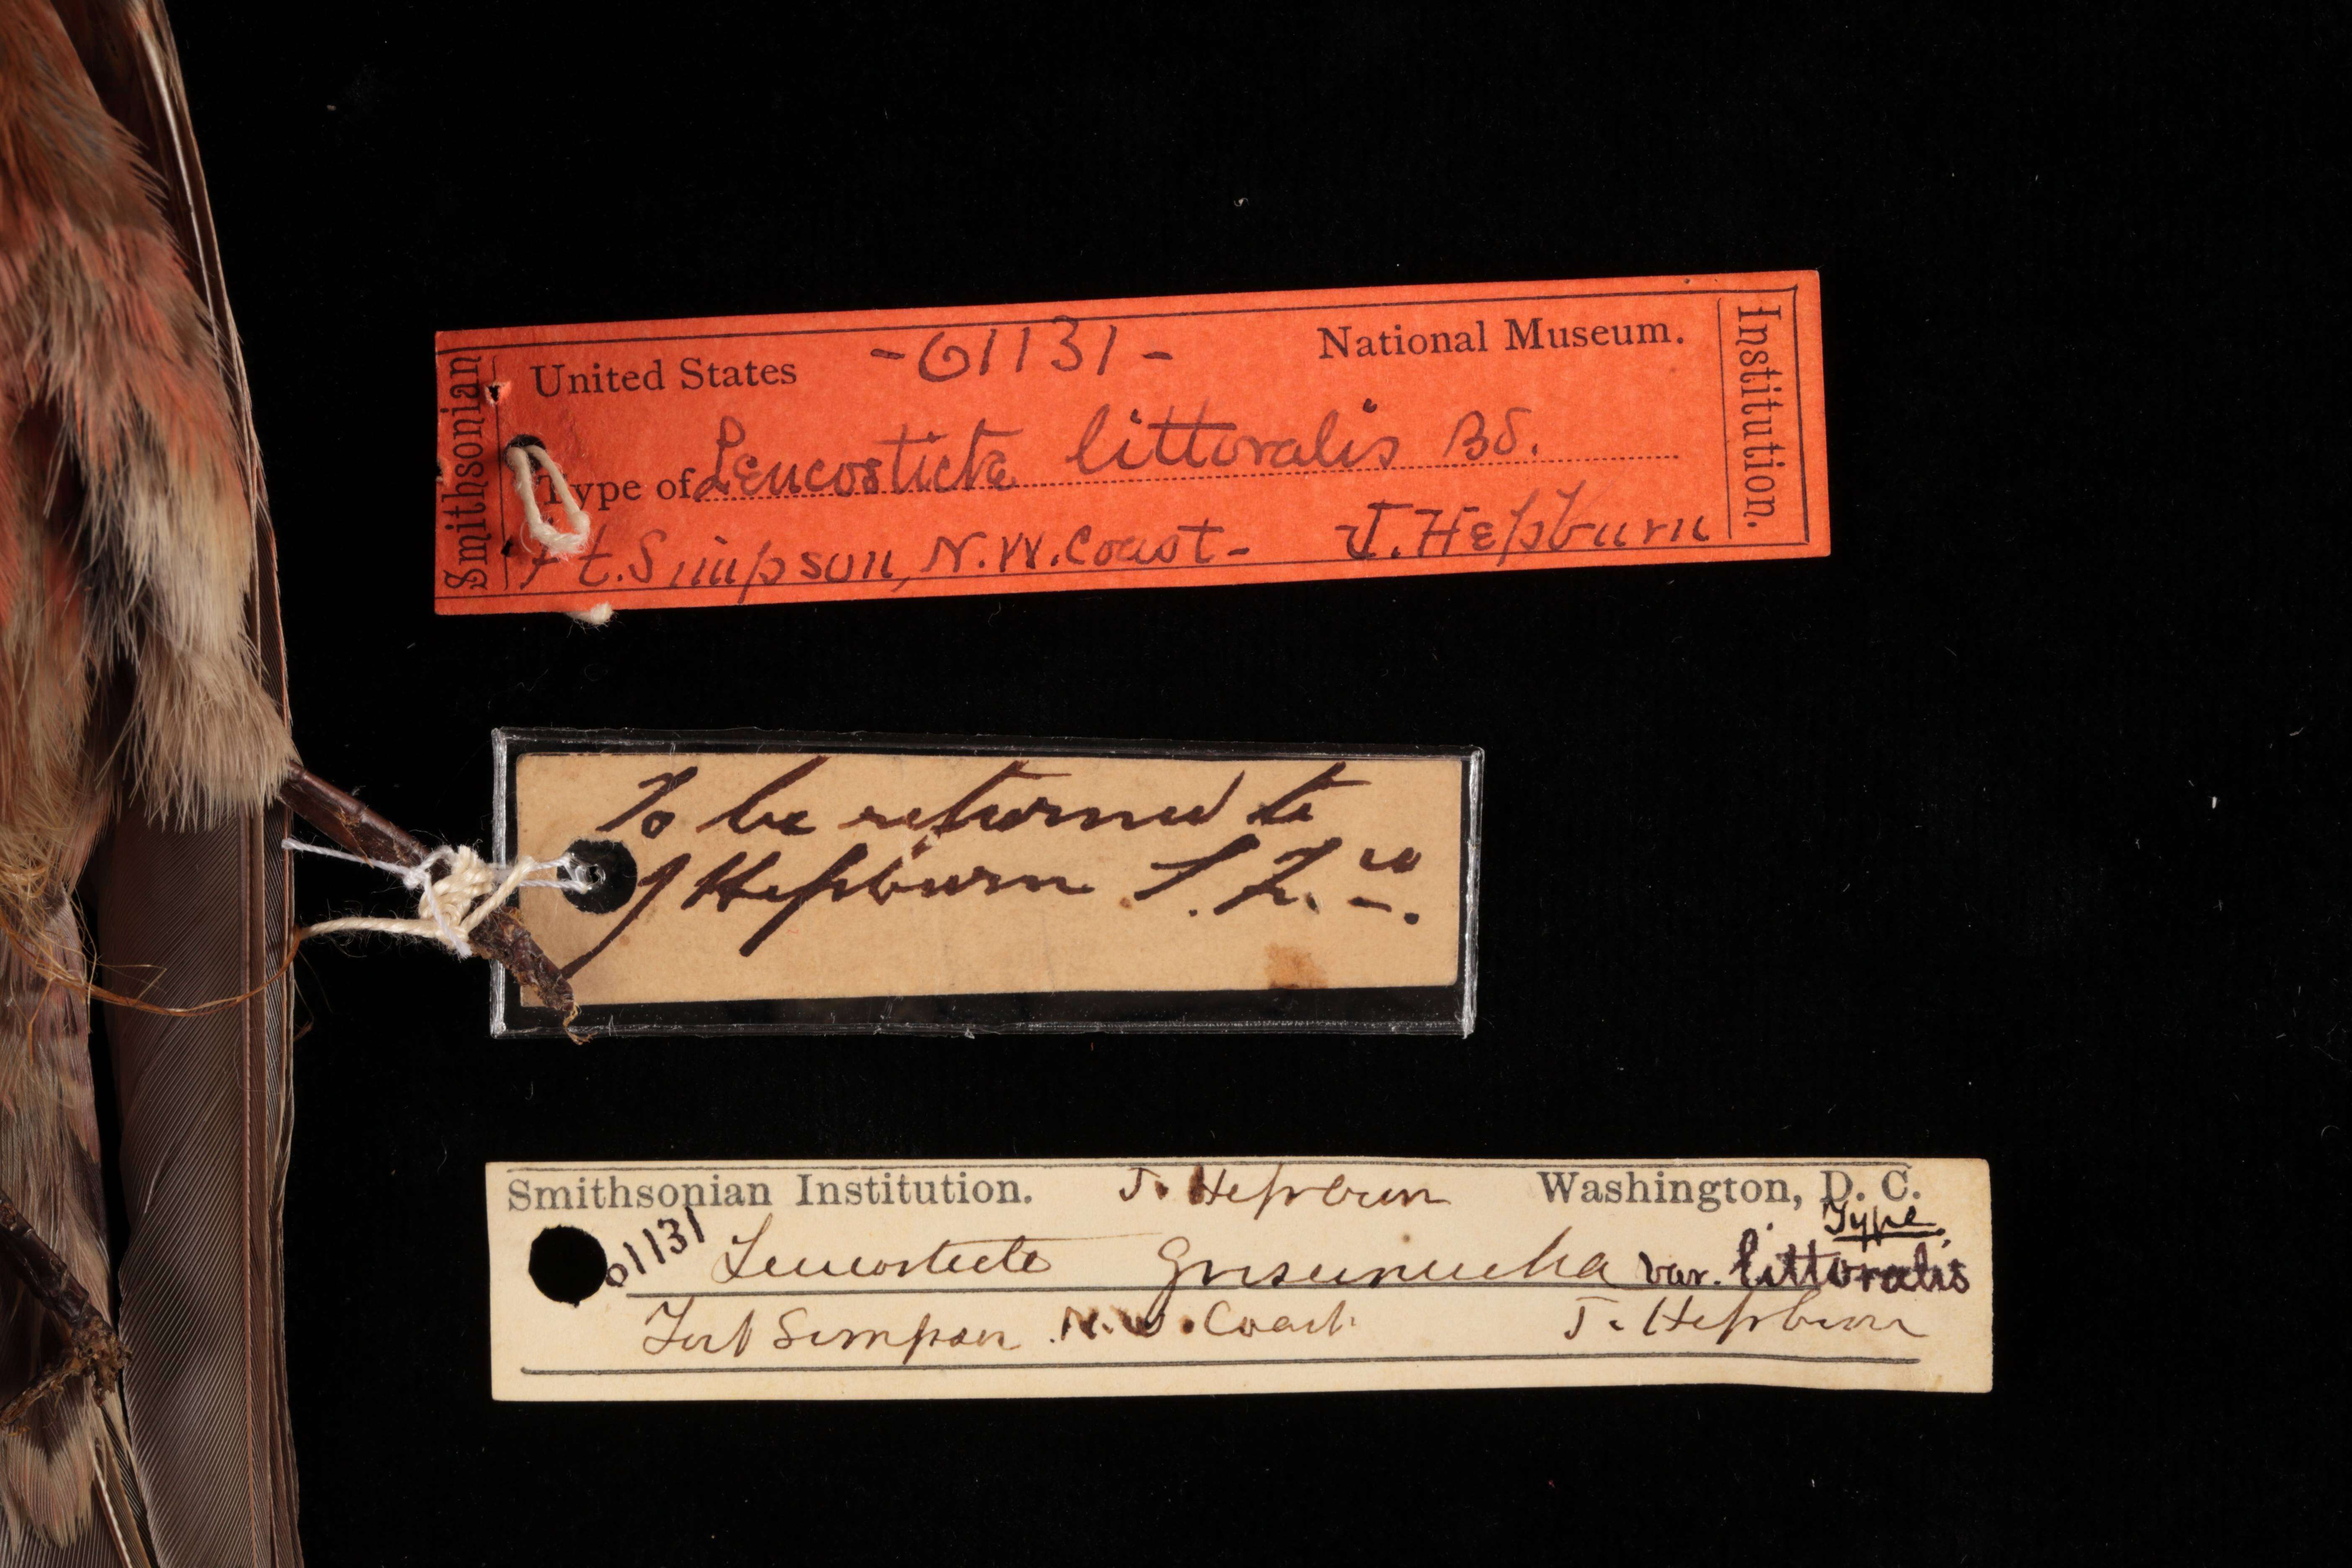 Smithsonian
United States -61131- National Museum.
Type of Leucosticte littoralis Bd.
Ft. Simpson, N.W. Coast - J. Hepburn
Institution.
To be returned to
J Hepburn S. F. co.
Smithsonian Institution. J. Hepburn Washington, D. C.
Type.
61131 Leucosticte Griseinucha var. littoralis
Fort Simpson N.W. Coast J. Hepburn